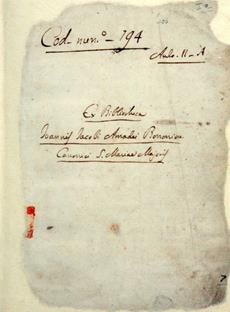 Cod. num.º 194
Aulo. II. A
Ex Bibliotheca
Joannis Jacobi Amadei Bononien.
Canonici S. Mariae Majoris